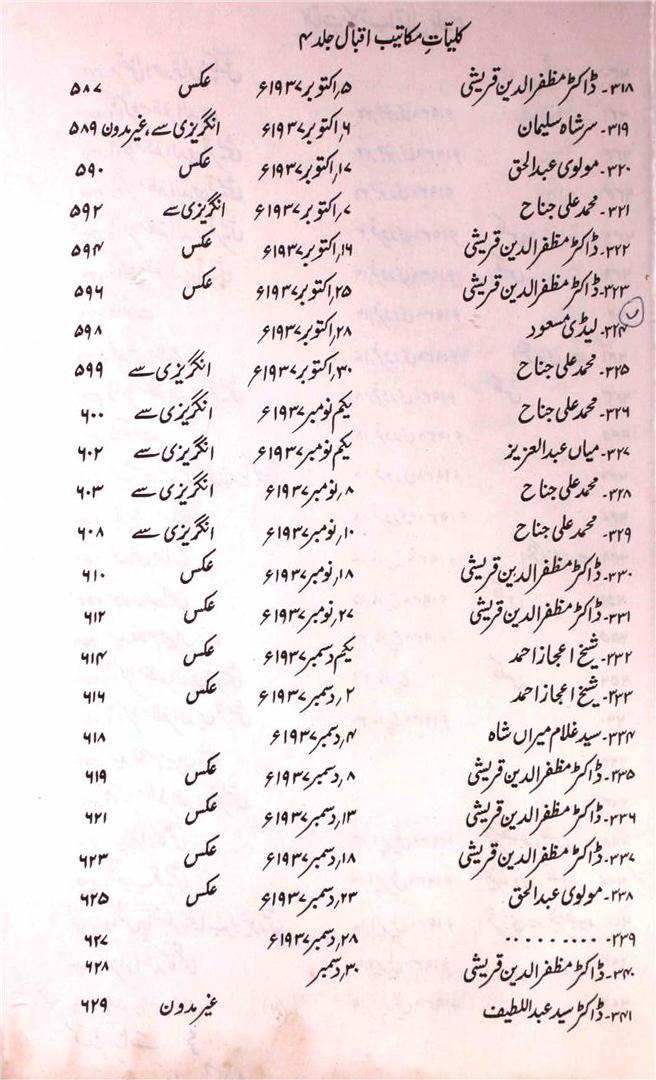 کلیّاتِ مکاتیب اقبال جلد ۴
۳۱۸۔ ڈاکٹر مظفر الدین قریشی ۵؍اکتوبر ۱۹۳۷ء عکس ۵۸۷
۳۱۹۔ سر شاہ سلیمان ۶؍اکتوبر ۱۹۳۷ء انگریزی سے، غیر مدون ۵۸۹
۳۲۰۔ مولوی عبدالحق ۱۷؍اکتوبر ۱۹۳۷ء عکس ۵۹۰
۳۲۱۔ محمد علی جناح ۷؍اکتوبر ۱۹۳۷ء انگریزی سے ۵۹۲
۳۲۲۔ ڈاکٹر مظفر الدین قریشی ۱۶؍اکتوبر ۱۹۳۷ء عکس ۵۹۴
۳۲۳۔ ڈاکٹر مظفر الدین قریشی ۲۵؍اکتوبر ۱۹۳۷ء عکس ۵۹۶
۳۲۴۔ لیڈی مسعود ۲۸؍اکتوبر ۱۹۳۷ء ۵۹۸
۳۲۵۔ محمد علی جناح ۳۰؍اکتوبر ۱۹۳۷ء انگریزی سے ۵۹۹
۳۲۶۔ محمد علی جناح یکم نومبر ۱۹۳۷ء انگریزی سے ۶۰۰
۳۲۷۔ میاں عبدالعزیز یکم نومبر ۱۹۳۷ء انگریزی سے ۶۰۲
۳۲۸۔ محمد علی جناح ۸؍نومبر ۱۹۳۷ء انگریزی سے ۶۰۳
۳۲۹۔ محمد علی جناح ۱۰؍نومبر ۱۹۳۷ء انگریزی سے ۶۰۸
۳۳۰۔ ڈاکٹر مظفر الدین قریشی ۱۸؍نومبر ۱۹۳۷ء عکس ۶۱۰
۳۳۱۔ ڈاکٹر مظفر الدین قریشی ۲۷؍نومبر ۱۹۳۷ء عکس ۶۱۲
۳۳۲۔ شیخ اعجاز احمد یکم دسمبر ۱۹۳۷ء عکس ۶۱۴
۳۳۳۔ شیخ اعجاز احمد ۲؍دسمبر ۱۹۳۷ء عکس ۶۱۶
۳۳۴۔ سید غلام میراں شاہ ۴؍دسمبر ۱۹۳۷ء ۶۱۸
۳۳۵۔ ڈاکٹر مظفر الدین قریشی ۸؍دسمبر ۱۹۳۷ء عکس ۶۱۹
۳۳۶۔ ڈاکٹر مظفر الدین قریشی ۱۳؍دسمبر ۱۹۳۷ء عکس ۶۲۱
۳۳۷۔ ڈاکٹر مظفر الدین قریشی ۱۸؍دسمبر ۱۹۳۷ء عکس ۶۲۳
۳۳۸۔ مولوی عبدالحق ۲۳؍دسمبر ۱۹۳۷ء عکس ۶۲۵
۳۳۹۔ .......... ۲۸؍دسمبر ۱۹۳۷ء ۶۲۷
۳۴۰۔ ڈاکٹر مظفر الدین قریشی ۳۰؍دسمبر ۶۲۸
۳۴۱۔ ڈاکٹر سید عبداللطیف غیر مدون ۶۲۹